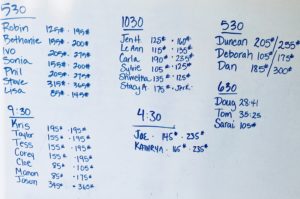 530
Robin 125# · 195#
Bethanie 155# · 200#
Ivo 205# · 275#
Sonia 155# · 200#
Phil 205# · 275#
Steve 315# · 365#
Lisa 85# · 145#
9:30
Kris
Taylor 155# · 195#
Tess 155# · 195#
Corey 155# · 195#
Cloe 85# · 105#
Manon 85# · 175#
Jason 345# · 365#
1030
Jen H. 125# · 160#
LeAnn 115# · 155#
Carla 190# · 255#
Sylvie 105# · 125#
135# · 185#
Stacy A. 175#
4:30
JOE · 145# · 235#
KATHRYN · 165# · 235#
530
Duncan 205#/255#
Deborah 105#/175#
Dan 185#/300#
630
Doug 28:41
Tom 35:25
Sarai 105#